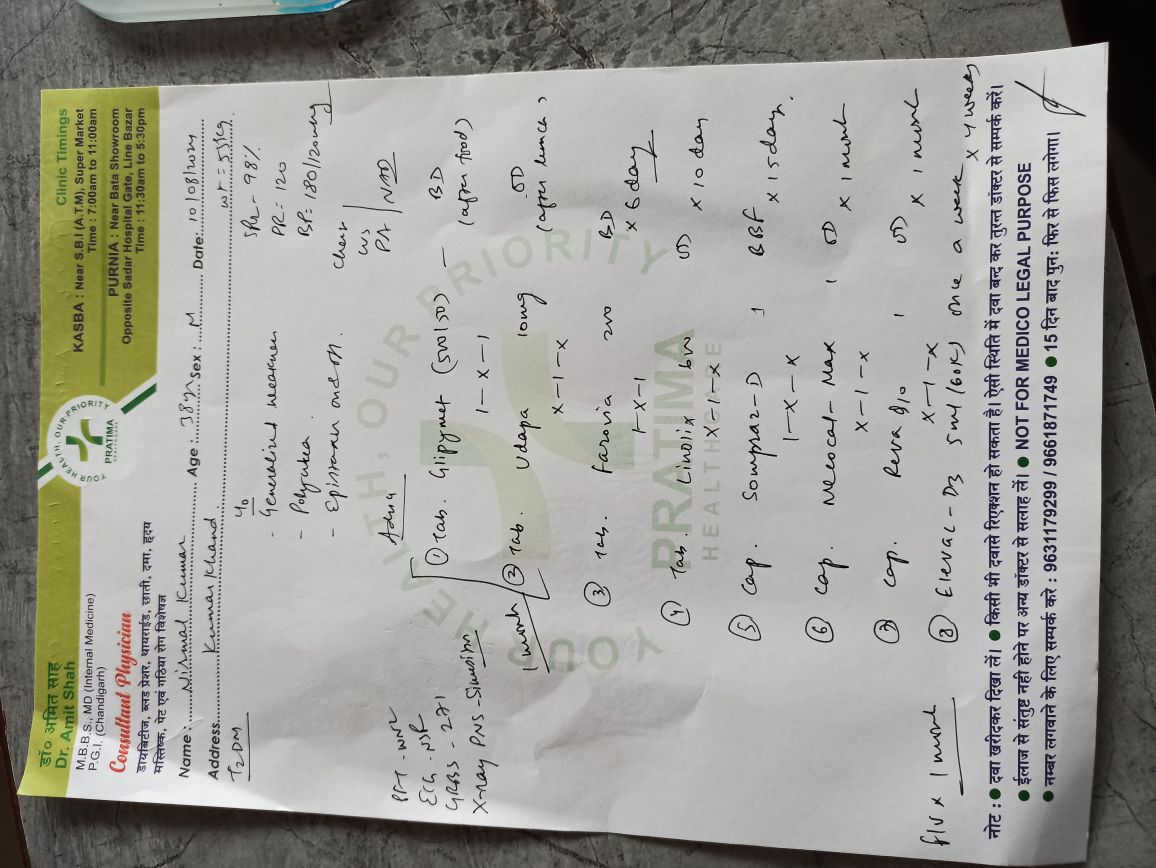 डॉ० अमित साह
Dr. Amit Shah
M.B.B.S., MD (Internal Medicine)
P.G.I. (Chandigarh)
Consultant Physician
डायबिटीज, ब्लड प्रेशर, थायराईड, छाती, दमा, हृदय
मस्तिष्क, पेट एवं गठिया रोग विशेषज्ञ
YOUR HEALTH, OUR PRIORITY
PRATIMA
HEALTHCARE
Clinic Timings
KASBA : Near S.B.I (A.T.M), Super Market
Time : 7:00am to 11:00am
PURNIA : Near Bata Showroom
Opposite Sadar Hospital Gate, Line Bazar
Time : 11:30am to 5:30pm
Name : Nirmal Kumar Age : 38yr Sex : M Date: 10/08/2024
Address Kumar Khand wt = 55kg
T2DM
c/o
- Generalized weakness
- Polyurea
- Epistaxis on & off.
SPO2 - 98%
PR = 120
BP = 180/120mmHg
Chest
PA / NAD
PFT - WNL
ECG - NSR
GRBS - 271
X-ray PNS - Sinusitis
Adv
① Tab. Glipymet (500/50) — BD
1-x-1 (after food)
② Tab. Udapa 10mg OD
x-1-x (after lunch)
1 month
③ Tab. Farovia 200 BD
1-x-1 x 6 day
④ Tab. Linolix 600 OD
x-1-x x 10 day
⑤ Cap. Sompraz-D 1 BBF
1-x-x x 15 day.
⑥ Cap. Neocal-Max 1 OD
x-1-x x 1 month
⑦ Cap. 1 OD
x-1-x x 1 month
⑧ D3 5ml (60K) once a week x 4 week
f/u x 1 month
YOUR HEALTH, OUR PRIORITY
PRATIMA
HEALTHCARE
नोट : ● दवा खरीदकर दिखा लें। ● किसी भी दवासे रिएक्शन हो सकता है। ऐसी स्थिति में दवा बन्द कर तुरन्त डॉक्टर से सम्पर्क करें।
● ईलाज से संतुष्ट नही होने पर अन्य डॉक्टर से सलाह लें। ● NOT FOR MEDICO LEGAL PURPOSE
● नम्बर लगवाने के लिए सम्पर्क करे : 9631179299 / 9661871749 ● 15 दिन बाद पुन: फिर से फिस लगेगा।